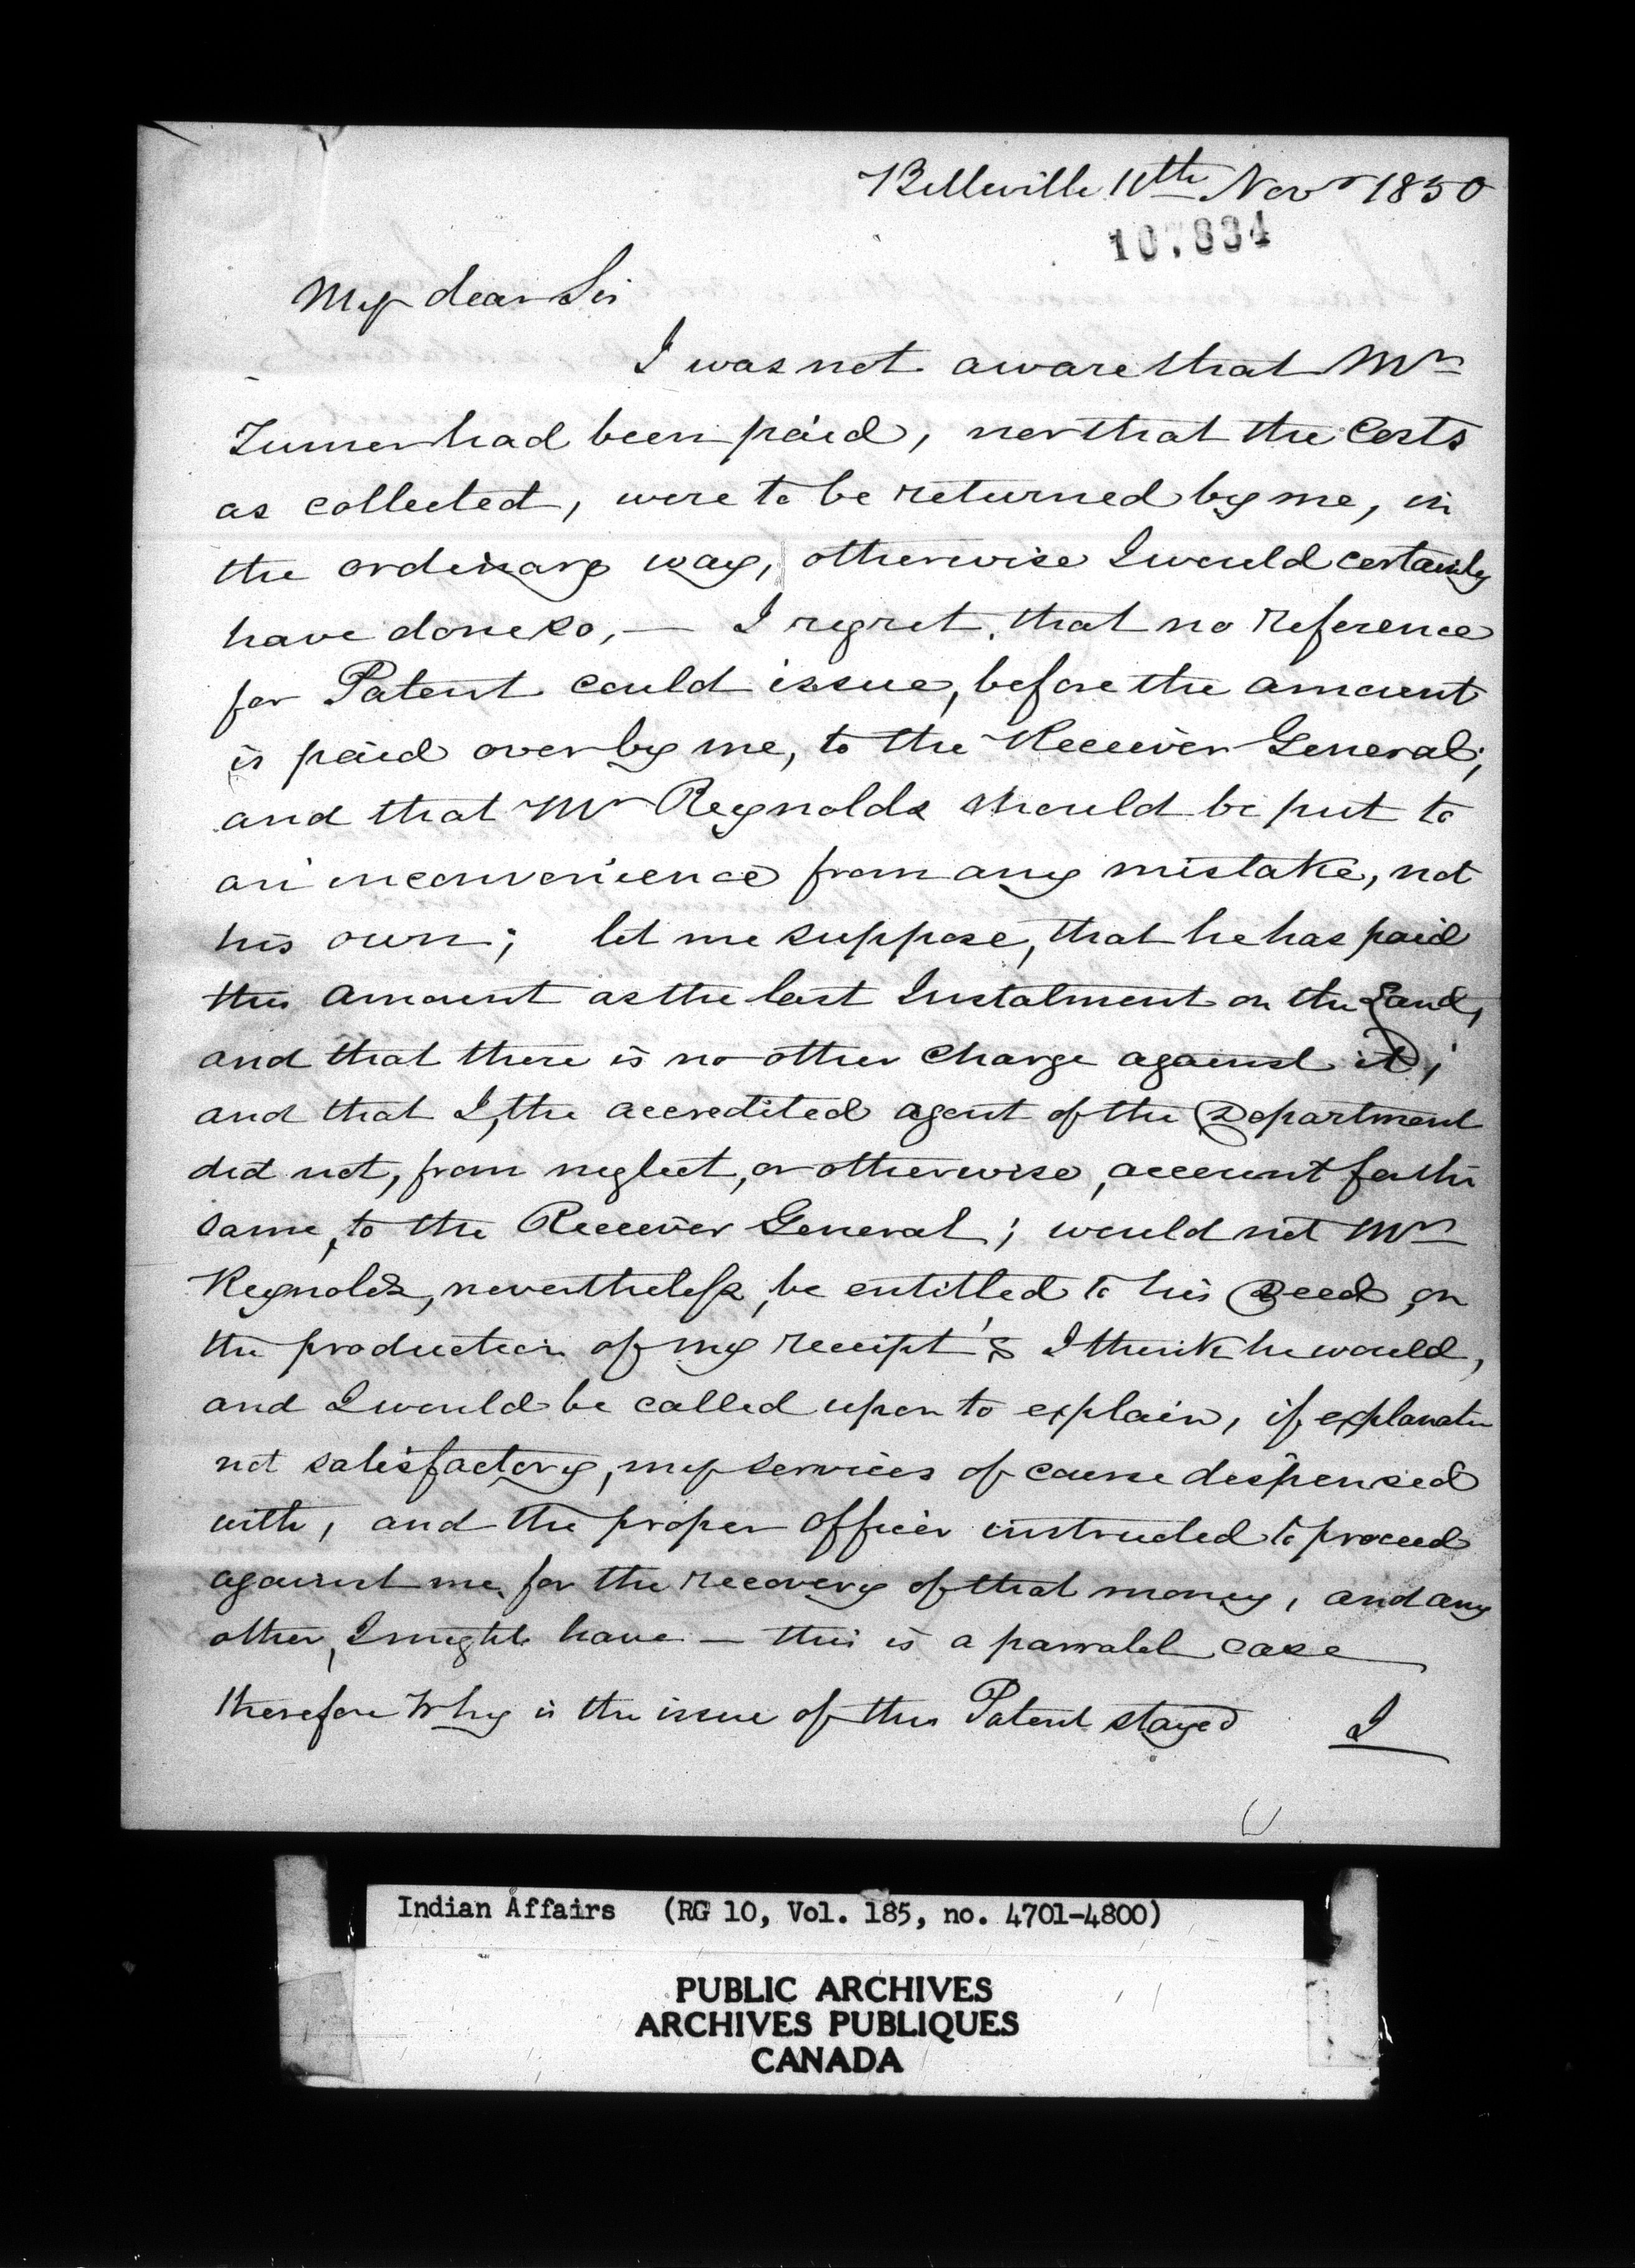 Belleville 11th Novr 1850
107834
My dear Sir
I was not aware that Mr
Turner had been paid, nor that the Costs
as collected, were to be returned by me, in
the ordinary way, otherwise I would certainly
have done so, — I regret, that no reference
for Patent could issue, before the amount
is paid over by me, to the Receiver General;
and that Mr Reynolds should be put to
an inconvenience from any mistake, not
his own; let me suppose, that he has paid
this amount as the last Instalment on the Land,
and that there is no other Charge against it;
and that I, the accredited agent of the Department
did not, from neglect, or otherwise, account for the
same, to the Receiver General; would not Mr
Reynolds, nevertheless, be entitled to his Deed, on
the production of my receipt? I think he would,
and I would be called upon to explain, if explanatn
not satisfactory, my services of course dispensed
with, and the proper Officer instructed to proceed
against me, for the recovery of that money, and any
other, I might have — this is a parralel case
therefore Why is the issue of this Patent stayed I
Indian Affairs (RG 10, Vol. 185, no. 4701-4800)
PUBLIC ARCHIVES
ARCHIVES PUBLIQUES
CANADA